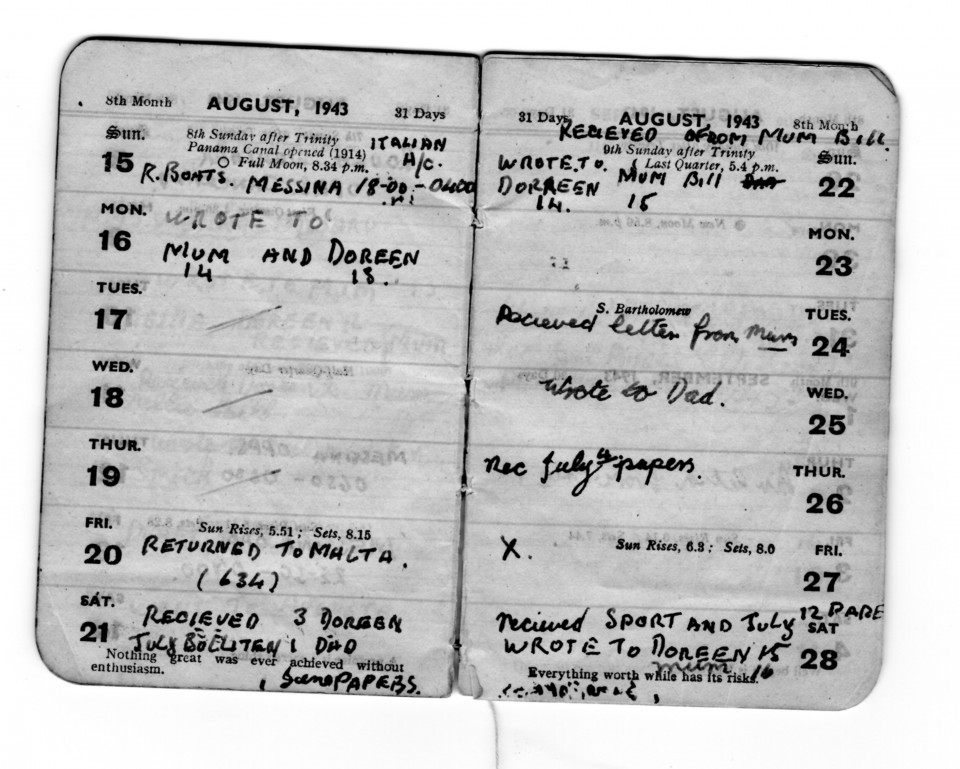 8th Month AUGUST, 1943 31 Days
Sun. 15
8th Sunday after Trinity
Panama Canal opened (1914) ITALIAN
Full Moon, 8.34 p.m. A/C.
R. BOATS. MESSINA 18-00 - 0400
MON. 16
WROTE TO
MUM AND DOREEN
14 18.
TUES. 17
WED. 18
THUR. 19
FRI. 20
Sun Rises, 5.51; Sets, 8.15
RETURNED TO MALTA.
(634)
SAT. 21
RECIEVED 3 DOREEN
JULY 1 DAD
Nothing great was ever achieved without
enthusiasm.
PAPERS.
31 Days AUGUST, 1943 8th Month
RECIEVED FROM MUM BILL
9th Sunday after Trinity
Sun. 22
WROTE TO. Last Quarter, 5.4 p.m.
DORREEN MUM BILL
14. 15
MON. 23
TUES. 24
S. Bartholomew
Recieved letter from Mum
WED. 25
Wrote to Dad.
THUR. 26
Rec July papers.
FRI. 27
X. Sun Rises, 6.3; Sets, 8.0
SAT 28
recieved SPORT AND July 12 PAPE
WROTE TO DOREEN 15
mum 16
Everything worth while has its risks.